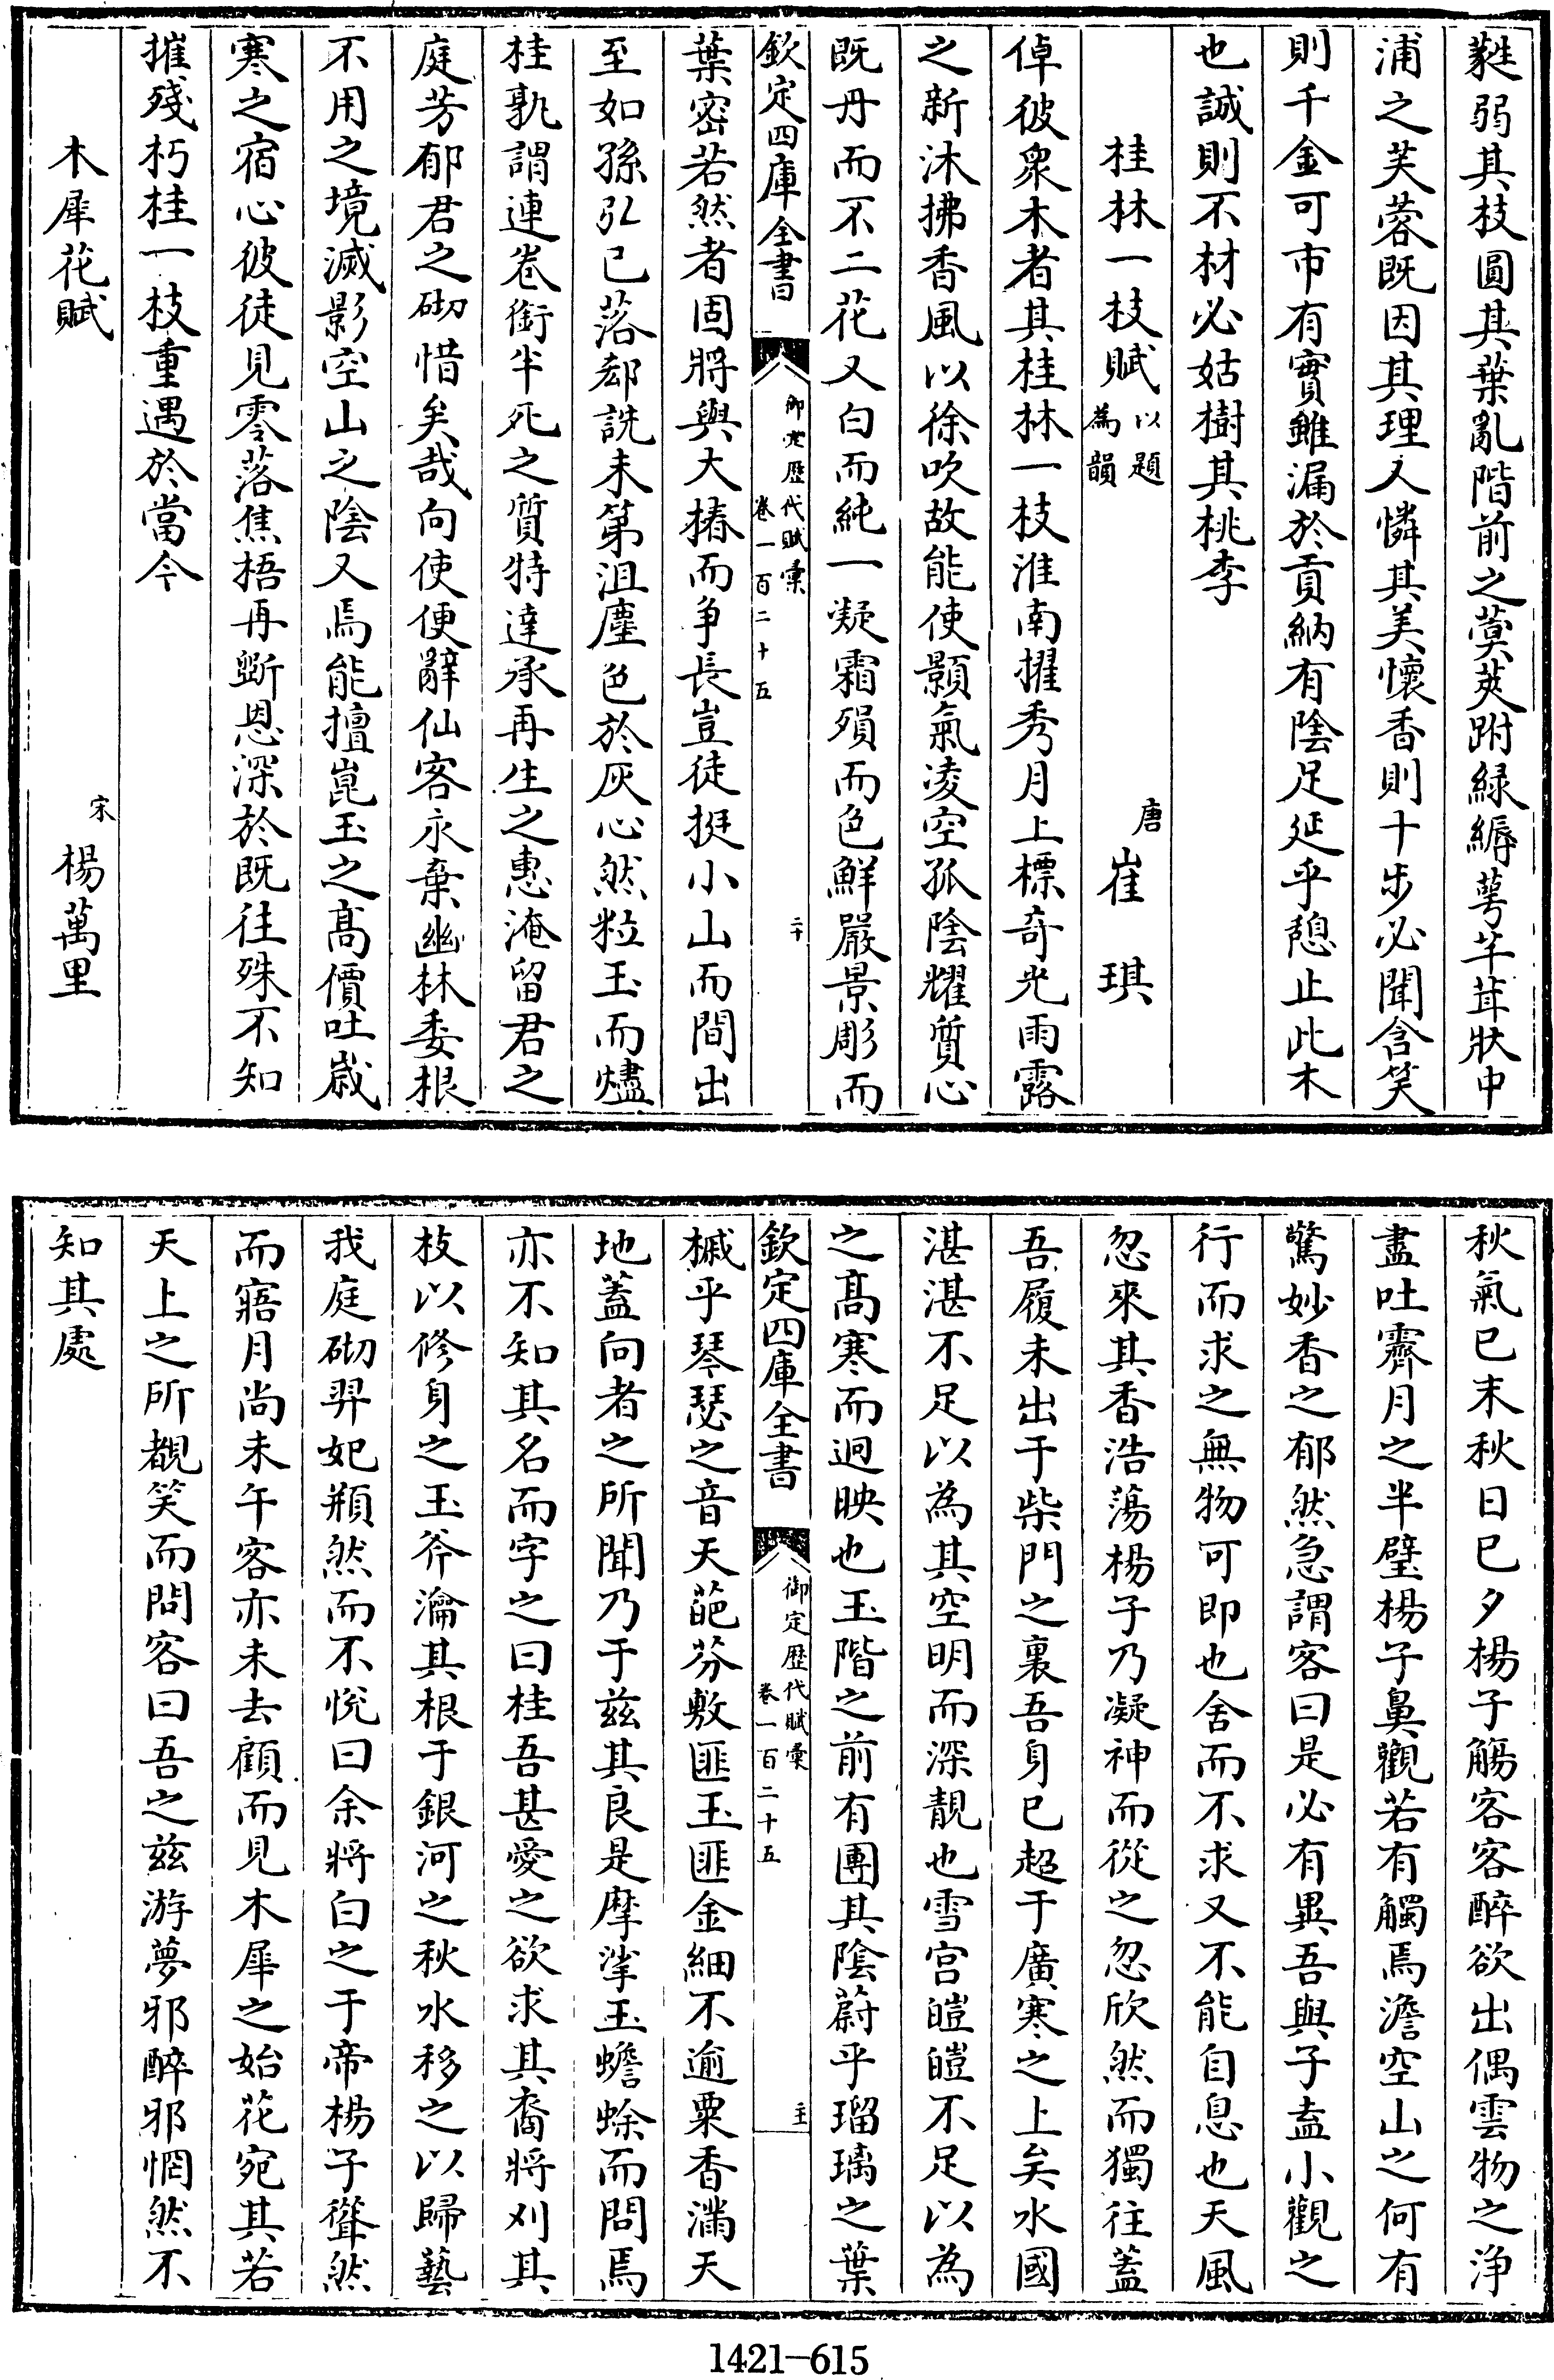 蕤弱其枝圓其葉亂階前之蓂莢跗緑縟萼芊茸狀中
浦之芙蓉既因其理又憐其美懷香則十步必聞含笑
則千金可市有實雖漏於貢納有陰足延乎憩止此木
也誠則不材必姑樹其桃李
桂林一枝賦以題為韻 唐 崔琪
倬彼衆木者其桂林一枝淮南擢秀月上標奇光雨露
之新沐拂香風以徐吹故能使顥氣凌空孤陰耀質心
既丹而不二花又白而純一凝霜殞而色鮮嚴景彫而
欽定四庫全書 御定歴代賦彙 卷一百二十五 二十
葉密若然者固將與大椿而争長豈徒挺小山而間出
至如孫弘已落郄詵未第沮塵色於灰心然粒玉而燼
桂孰謂連卷銜半死之質特達承再生之惠淹留君之
庭芳郁君之砌惜矣哉向使便辭仙客永棄幽林委根
不用之境滅影空山之陰又焉能擅崑玉之高價吐歳
寒之宿心彼徒見零落焦梧再斲恩深於既往殊不知
摧殘朽桂一枝重遇於當今
木犀花賦 宋 楊萬里
秋氣已末秋日已夕楊子觴客客醉欲出偶雲物之浄
盡吐霽月之半璧楊子鼻觀若有觸焉澹空山之何有
驚妙香之郁然急謂客曰是必有異吾與子盍小觀之
行而求之無物可即也舍而不求又不能自息也天風
忽來其香浩蕩楊子乃凝神而從之忽欣然而獨往蓋
吾履未出于柴門之裏吾身已超于廣寒之上矣水國
湛湛不足以為其空明而深靚也雪宫皚皚不足以為
之高寒而迥映也玉階之前有團其陰蔚乎瑠璃之葉
欽定四庫全書 御定歴代賦彙 卷一百二十五
槭乎琴瑟之音天葩芬敷匪玉匪金細不逾粟香滿天
地蓋向者之所聞乃于兹其良是摩挲玉蟾蜍而問焉
亦不知其名而字之曰桂吾甚愛之欲求其裔將刈其
枝以修身之玉斧瀹其根于銀河之秋水移之以歸藝
我庭砌羿妃頩然而不悅曰余將白之于帝楊子聳然
而寤月尚未午客亦未去顧而見木犀之始花宛其若
天上之所覩笑而問客曰吾之兹游夢邪醉邪惘然不
知其處
1421—615